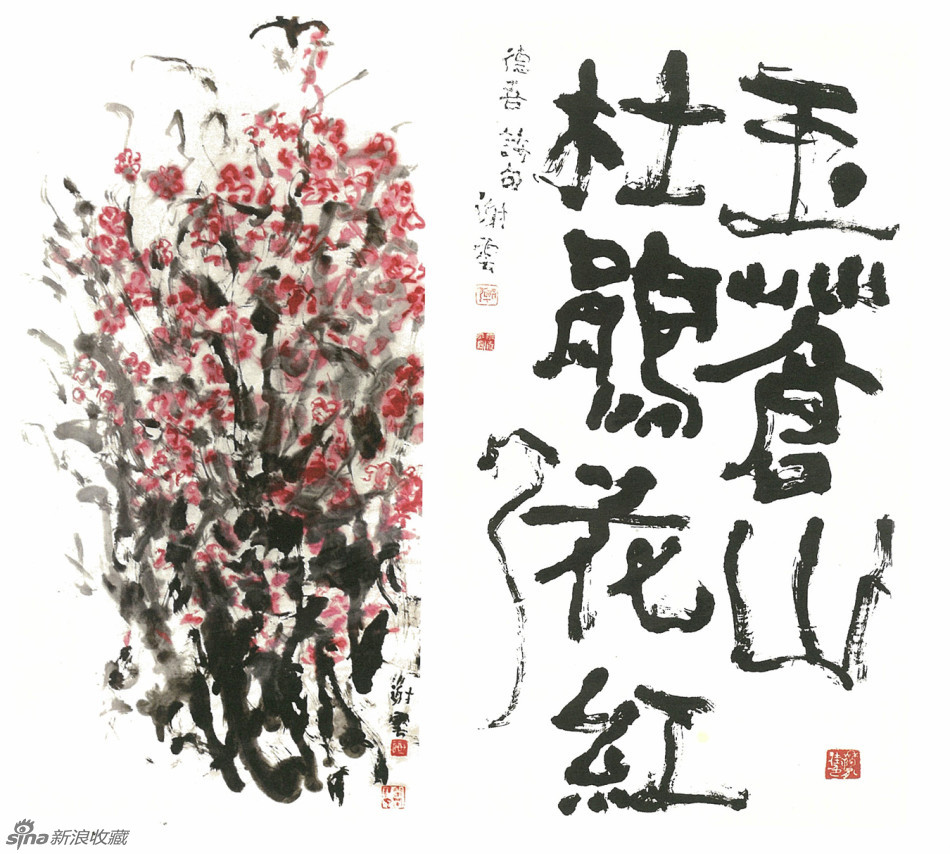 玉蒼山
杜鵑花紅
了
德吾詩句 謝雲
謝雲
sina新浪收藏